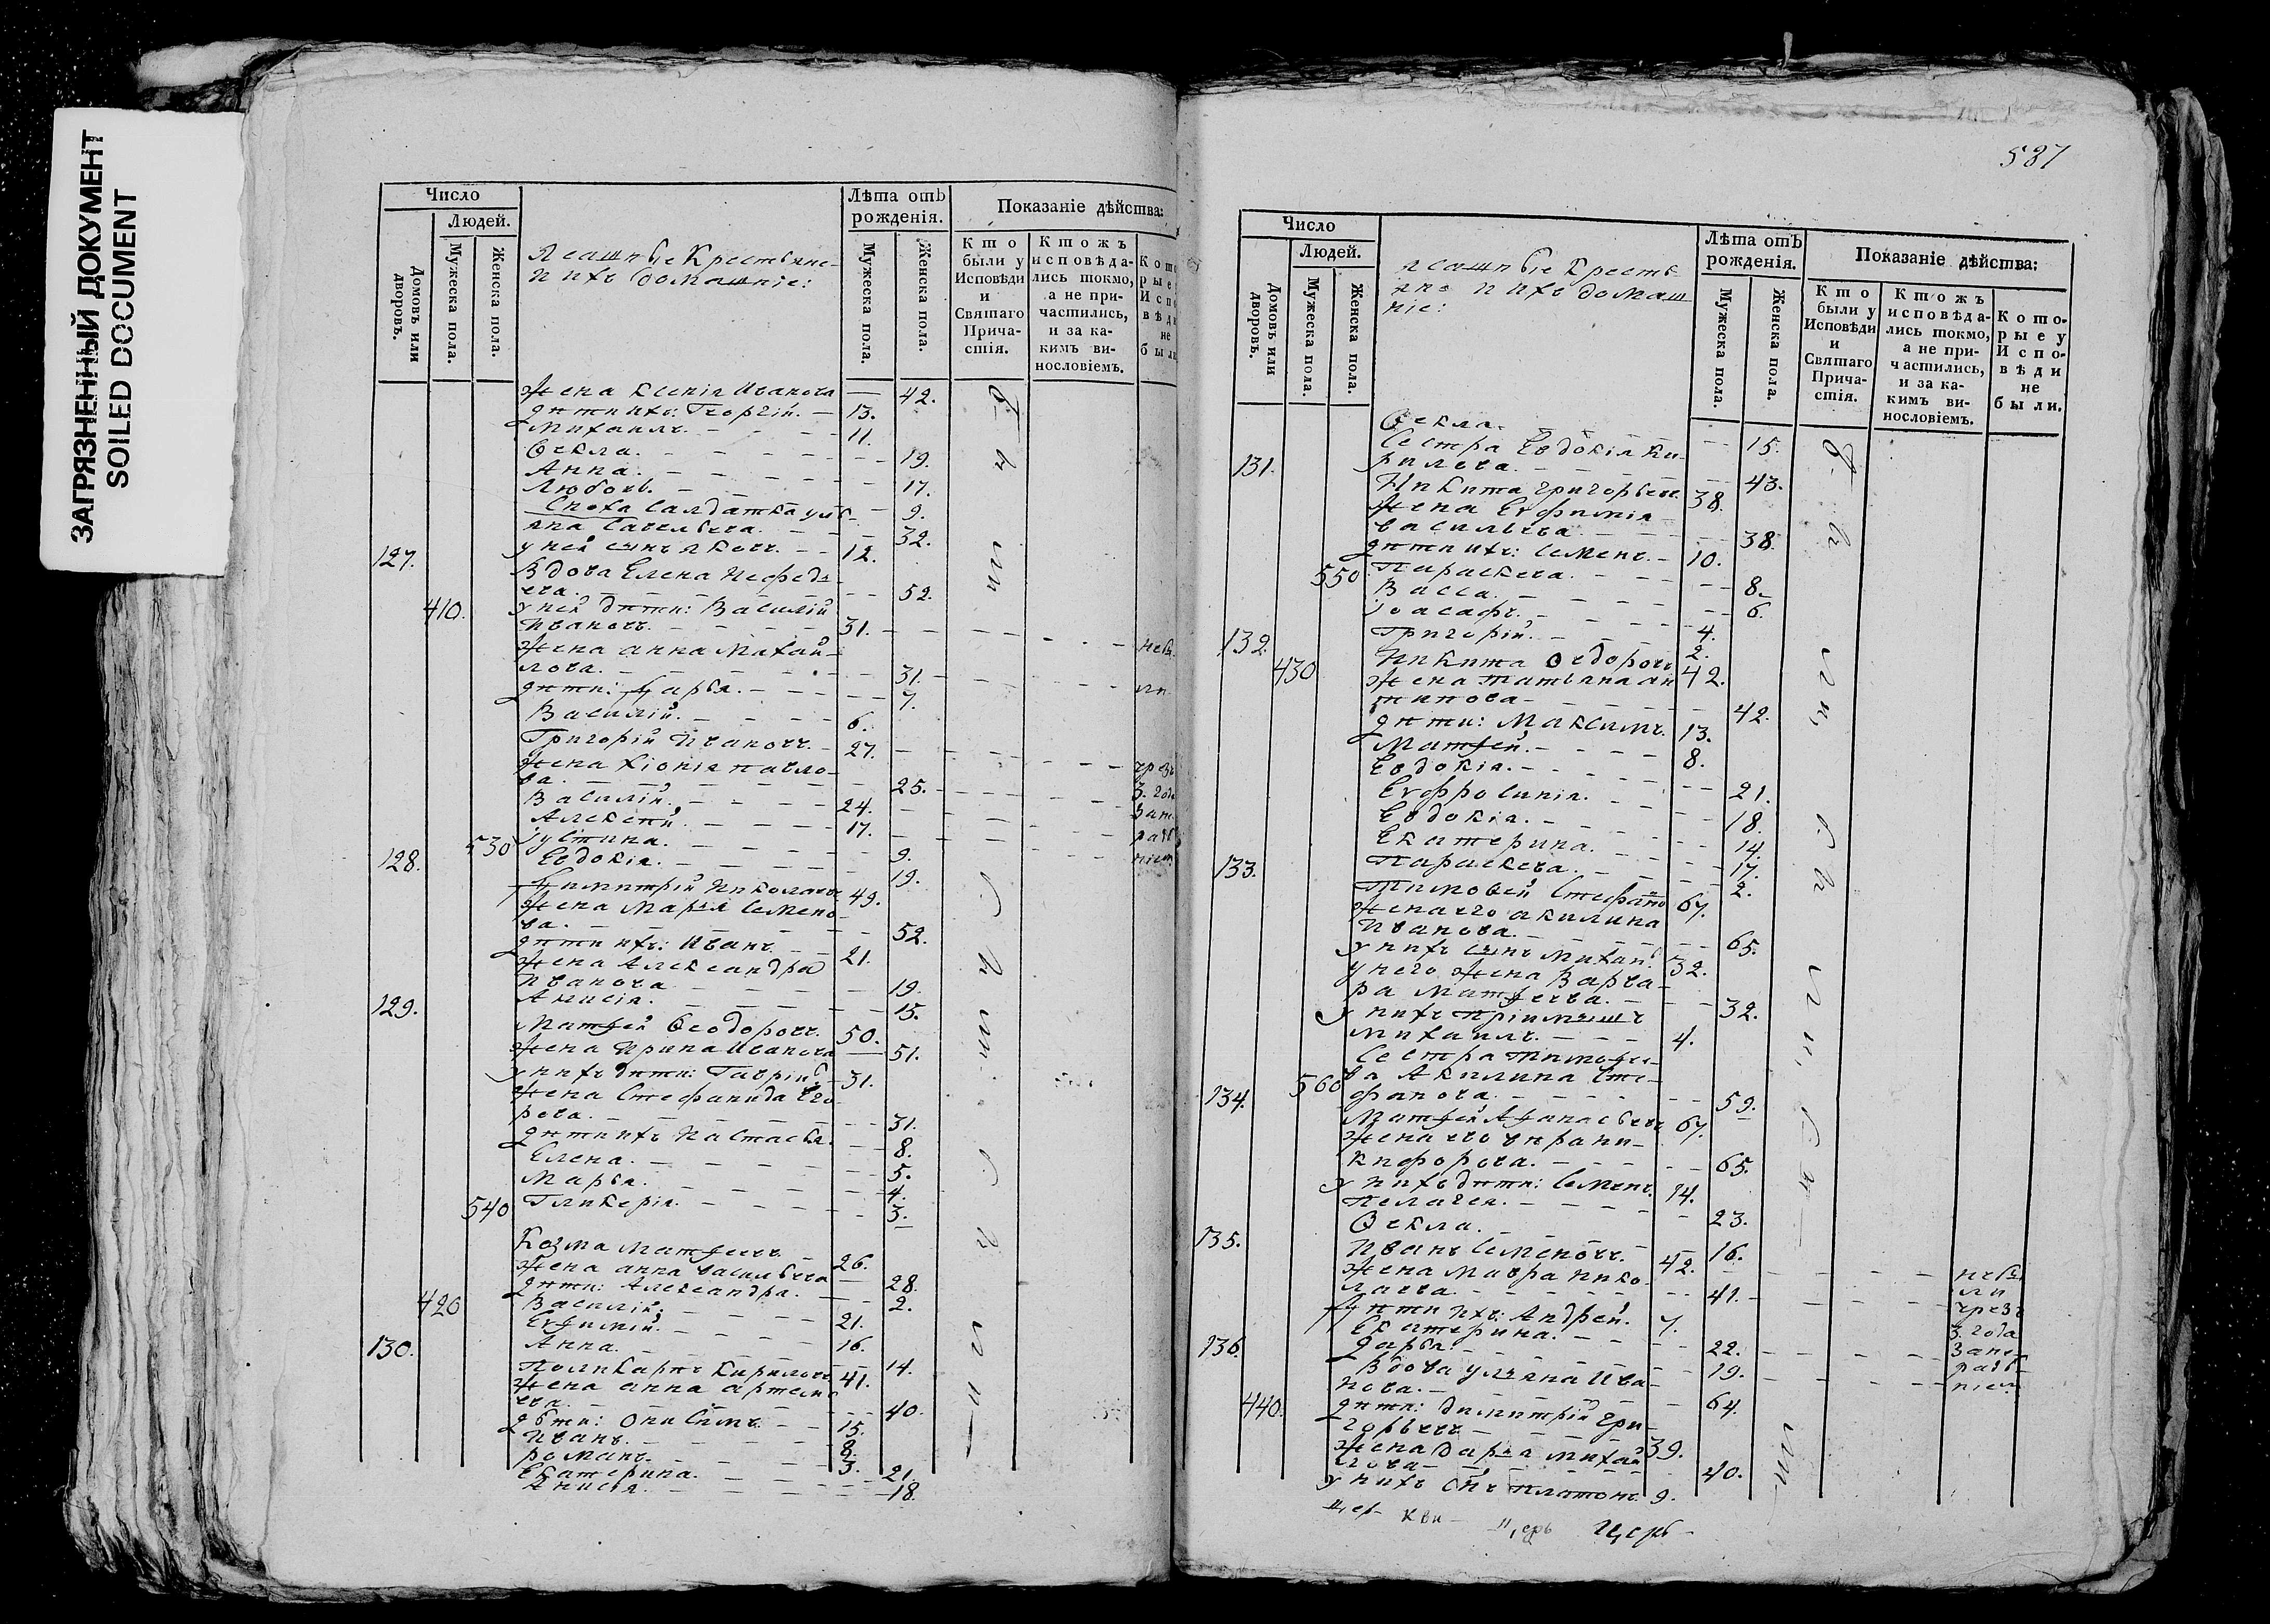 ЗАГРЯЗНЕННЫЙ ДОКУМЕНТ
SOILED DOCUMENT
Число
Людей.
Домовъ или дворовъ.
Мужеска пола.
Женска пола.
Лѣта отъ рожденія.
Мужеска пола.
Женска пола.
Показаніе дѣйства:
Кто были у Исповѣди и Святаго Причастія.
Ктожъ исповѣдались токмо, а не причастились, и за какимъ винословіемъ.
крестьяне
и ихъ домашніе:
жена Ксенія Иванова — 42.
дѣти ихъ: Георгій. — 13.
Михаилъ. — 11.
Ѳекла. — 19.
Анна. — 17.
Любовь. — 9.
Сноха салдатка Улья-
на Савельева. — 32.
у ней сынъ Яковъ. — 12.
127.
Вдова Елена Нефедь-
ева. — 52.
410. у ней дѣти: Василій
Ивановъ. — 31.
жена Анна Михай-
лова. — 31.
дѣти: Дарья. — 7.
Василій. — 6.
Григорій Ивановъ. — 27.
жена Хіонія Павло-
ва. — 25.
Василій. — 24.
Алексѣй. — 17.
530 Іустина. — 9.
128. Евдокія. — 19.
Димитрій Николаевъ 49.
жена Марья Семено-
ва. — 52.
дѣти ихъ: Иванъ — 21.
жена Александра
Иванова — 19.
129. Анисія. — 15.
Матѳей Ѳеодоровъ. 50.
жена Ирина Иванова — 51.
у нихъ дѣти: Гавріилъ — 31.
жена Стефанида Его-
рова. — 31.
дѣти ихъ Настасья. 8.
Елена. — 5.
Марья. — 4.
540 Гликерія. — 3.
Козма Матѳеевъ — 26.
жена Анна Васильева — 28.
дѣти: Александра. — 2.
420 Василій. — 21.
Евѳимій. — 16.
130. Анна. — 14.
Поликарпъ Кириловъ 41.
жена Анна Артемь-
ева. — 40.
дѣти: Онисимъ. — 15.
Иванъ. — 8.
Романъ. — 3.
Екатерина. — 21.
Анисія. — 18.
587
Число
Людей.
Домовъ или дворовъ.
Мужеска пола.
Женска пола.
Лѣта отъ рожденія.
Мужеска пола.
Женска пола.
Показаніе дѣйства:
Кто были у Исповѣди и Святаго Причастія.
Ктожъ исповѣдались токмо, а не причастились, и за какимъ винословіемъ.
Которые у Исповѣди не были.
кресть-
яне и ихъ домаш-
ніе:
Ѳекла. — 15.
Сестра Евдокія Ки-
131. рилова. — 43.
Никита Григорьевъ 38.
жена Евфимія
Васильева. — 38.
дѣти ихъ: Семенъ. — 10.
550 Параскева. — 8.
Васса. — 6.
Іоасафъ. — 4.
132. Григорій. — 2.
430 Никита Ѳедоровъ 42.
жена Татьяна Ан-
типова — 42.
дѣти: Максимъ. 13.
Матѳей. — 8.
Евдокія. — 21.
Евфросинія. — 18.
Евдокія. — 14.
Екатерина. — 17.
133. Параскева. — 2.
Тимоѳей Стефано 67.
жена его Акилина
Иванова. — 65.
у нихъ сынъ Михаилъ 32.
у него жена Варва-
ра Матѳеева. — 32.
у нихъ пріимышъ
Михаилъ. — 4.
Сестра Тимоѳее-
560 ва Акилина Сте-
134. фанова. — 59.
Матѳей Аѳанасьевъ 67.
жена его Ирина Ни-
кифорова. — 65.
у нихъ дѣти: Семенъ. 14.
Пелагея. — 23.
Ѳекла. — 16.
135. Иванъ Семеновъ. — 42.
жена Мавра Нико-
лаева. — 41.
Дѣти ихъ: Андрей. 7.
Екатерина. — 22.
136. Дарья. — 19.
Вдова Ульяна Ива-
нова. — 64.
440. дѣти: Димитрій Гри-
горьевъ — 39.
жена Дарья Михай-
лова — 40.
у нихъ сынъ Платонъ. 9.
небы-
ли
чрезъ
3. года
за не-
радѣ-
ніем.
цер- кви- церь церь-